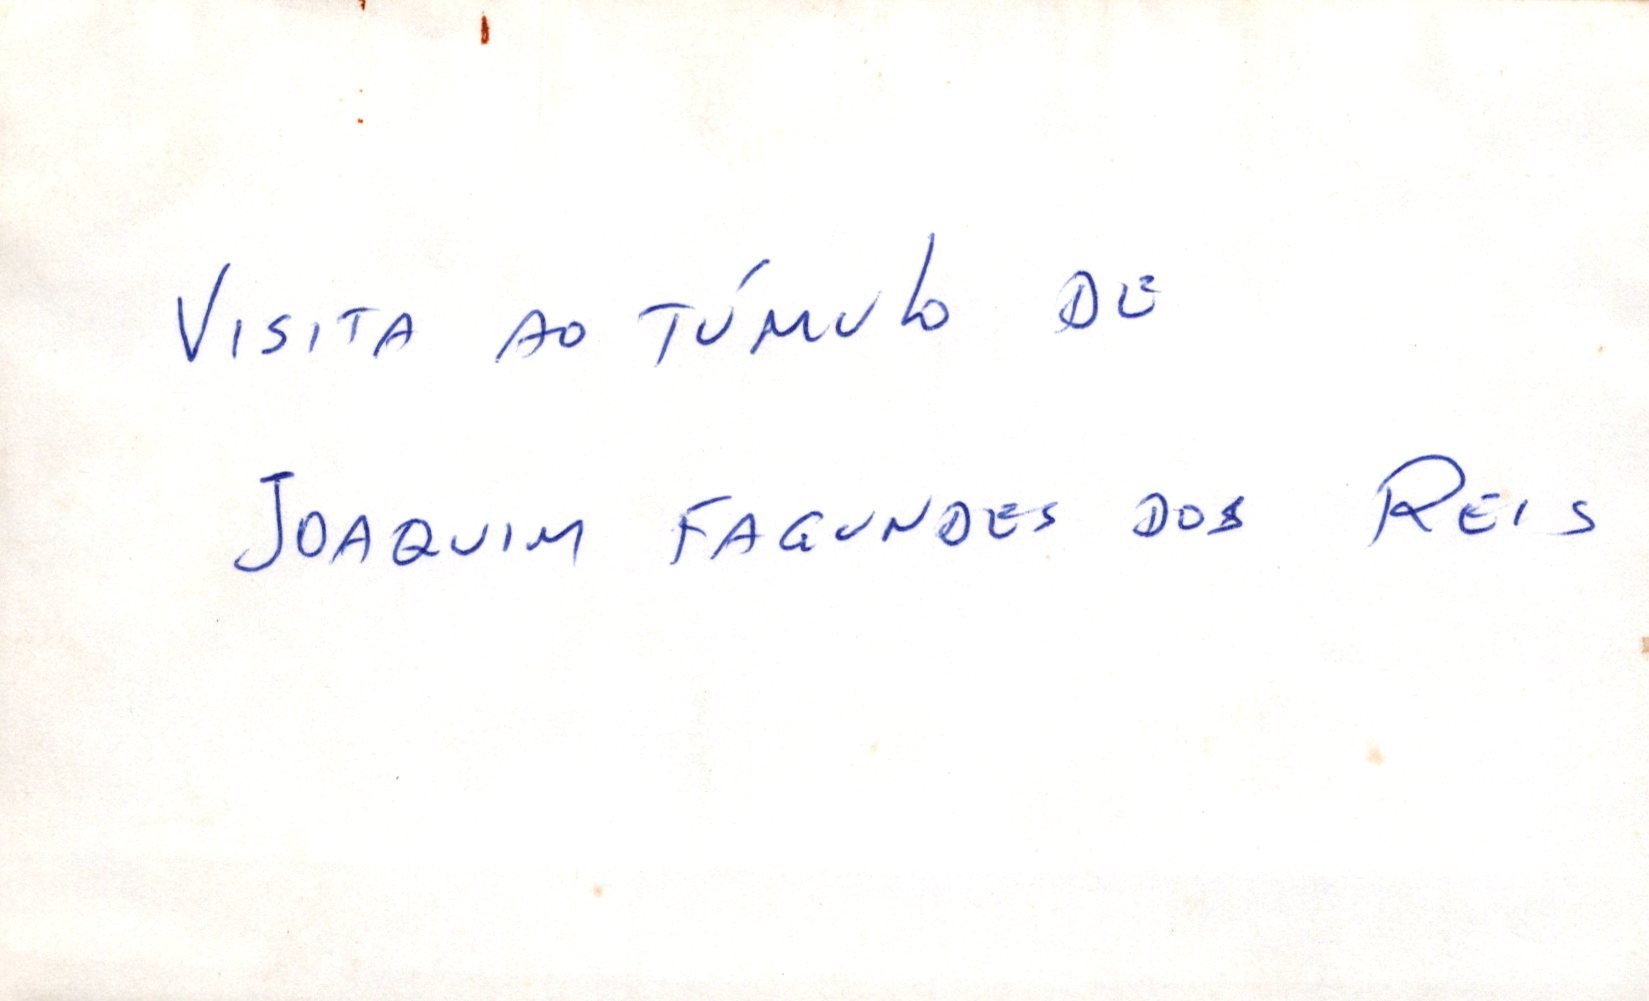 VISITA AO TÚMULO DE
JOAQUIM FAGUNDES DOS REIS